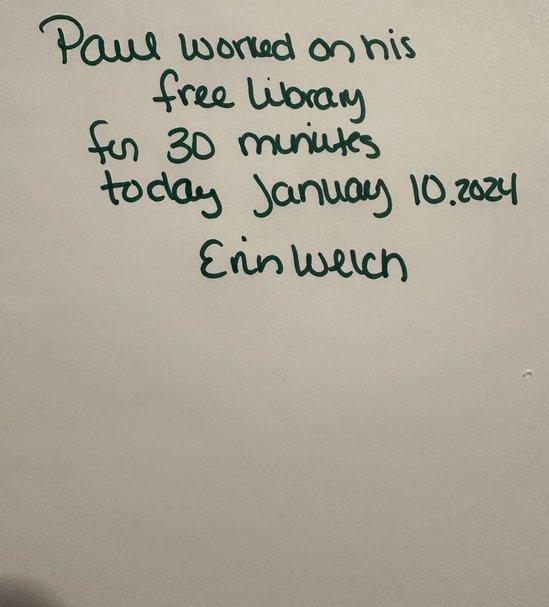 Paul worked on his
free library
for 30 minutes
today January 10.2024
Erin Welch